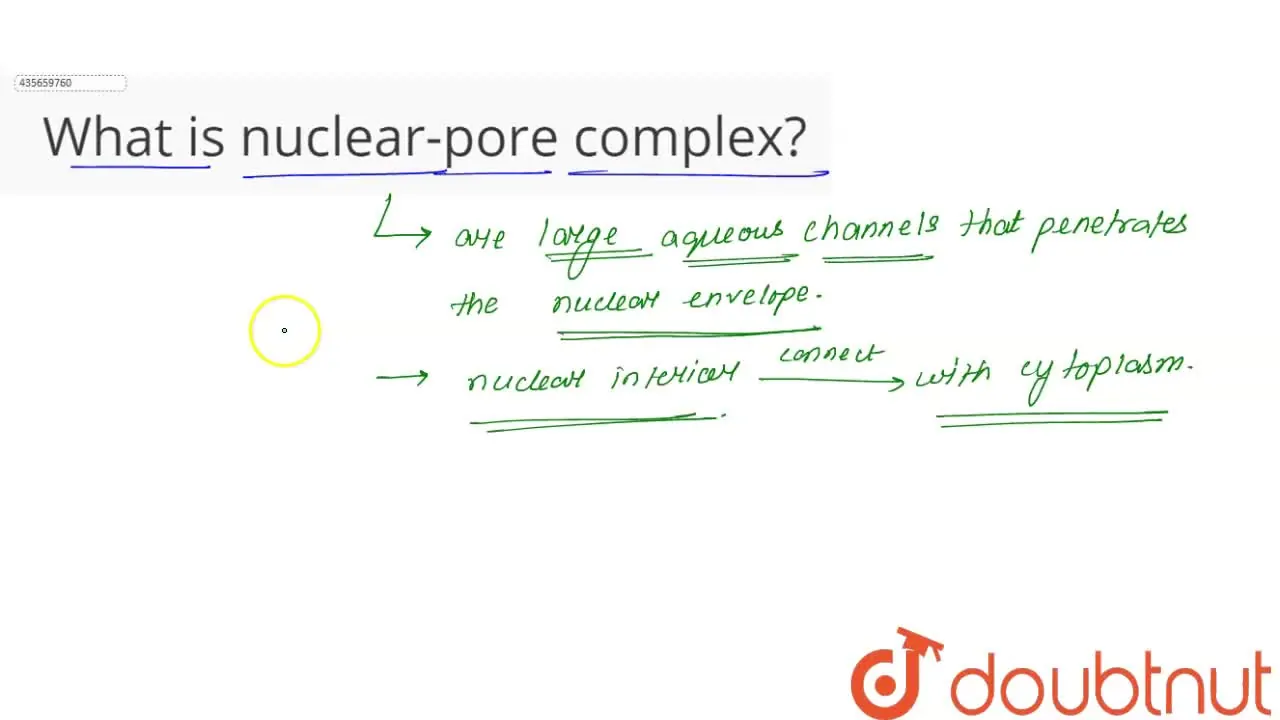 435659760
What is nuclear-pore complex?
are large aqueous channels that penetrates
the nuclear envelope.
nuclear interior connect with cytoplasm.
doubtnut